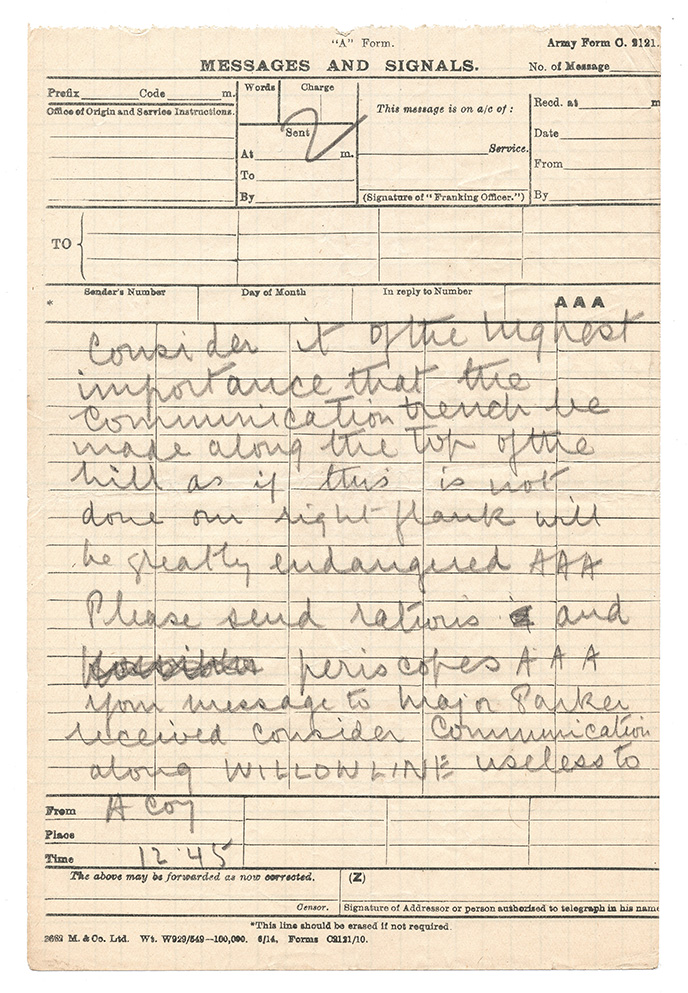 "A" Form.
Army Form C. 2121.
MESSAGES AND SIGNALS.
No. of Message
Prefix Code m.
Office of Origin and Service Instructions.
Words Charge
Sent
At m.
To
By
2
This message is on a/c of :
Service.
(Signature of "Franking Officer.")
Recd. at m
Date
From
By
TO
Sender's Number
Day of Month
In reply to Number
AAA
*
Consider it of the highest
importance that the
communication trench be
made along the top of the
hill as if this is not
done our right flank will
be greatly endangered AAA
Please send rations and
periscopes AAA
Your message to Major Parker
received consider Communication
along WILLOWLINE useless to
From A Coy
Place
Time 12.45
The above may be forwarded as now corrected.
(Z)
Censor.
Signature of Addressor or person authorised to telegraph in his name
*This line should be erased if not required.
2662 M. & Co. Ltd. Wt. W929/549—100,000. 6/14. Forms C2121/10.